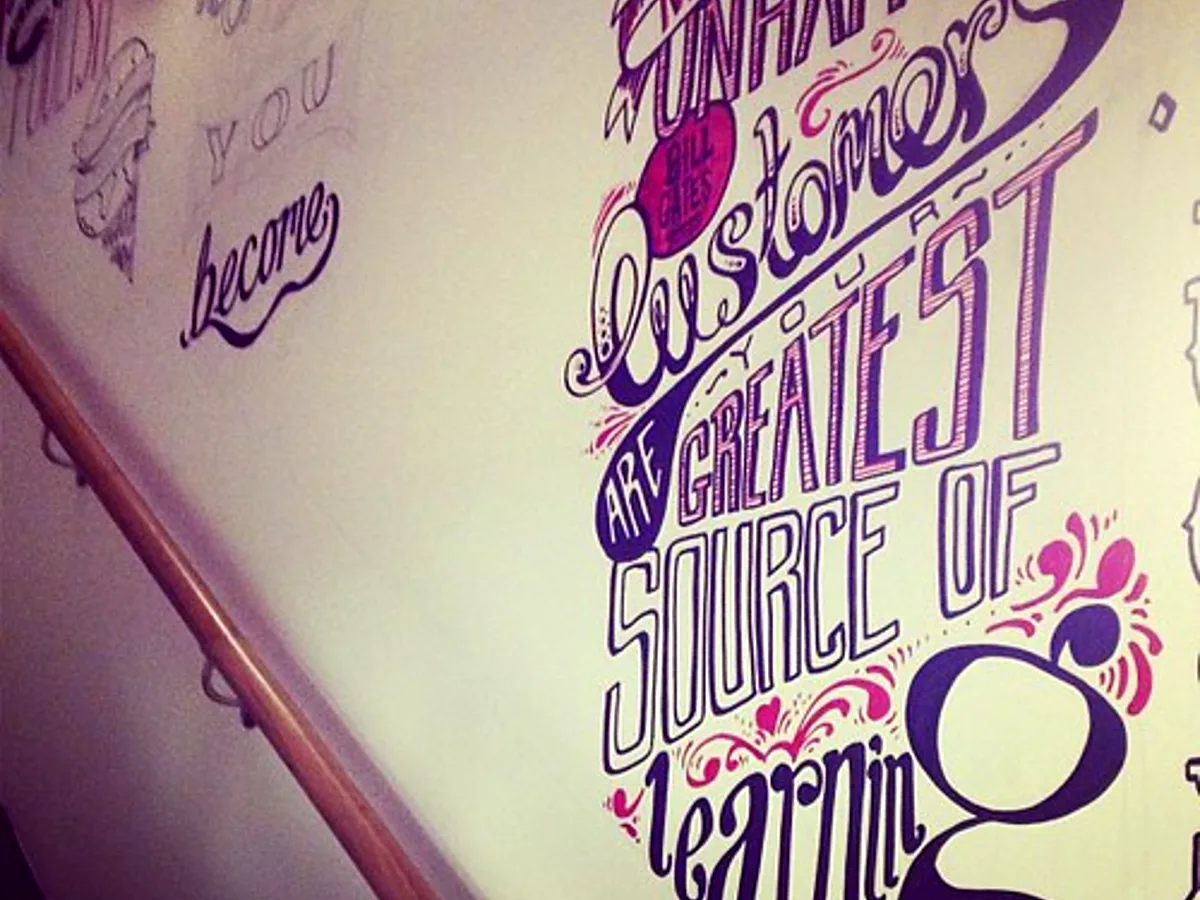 YOU
become
UNHAPP
BILL
GATES
Customers
ARE GREATEST
SOURCE OF
learning